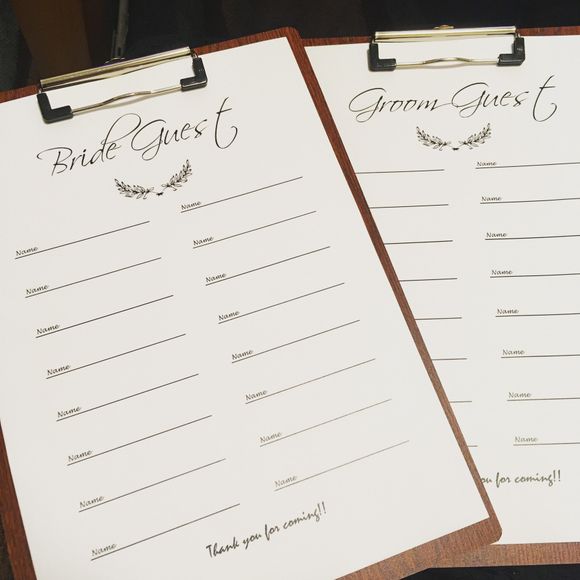 Bride Guest
Name Name
Name Name
Name Name
Name Name
Name Name
Name Name
Name Name
Name Name
Thank you for coming!!
Groom Guest
Name
Name
Name
Name
Name
Name
Name
Name
you for coming!!